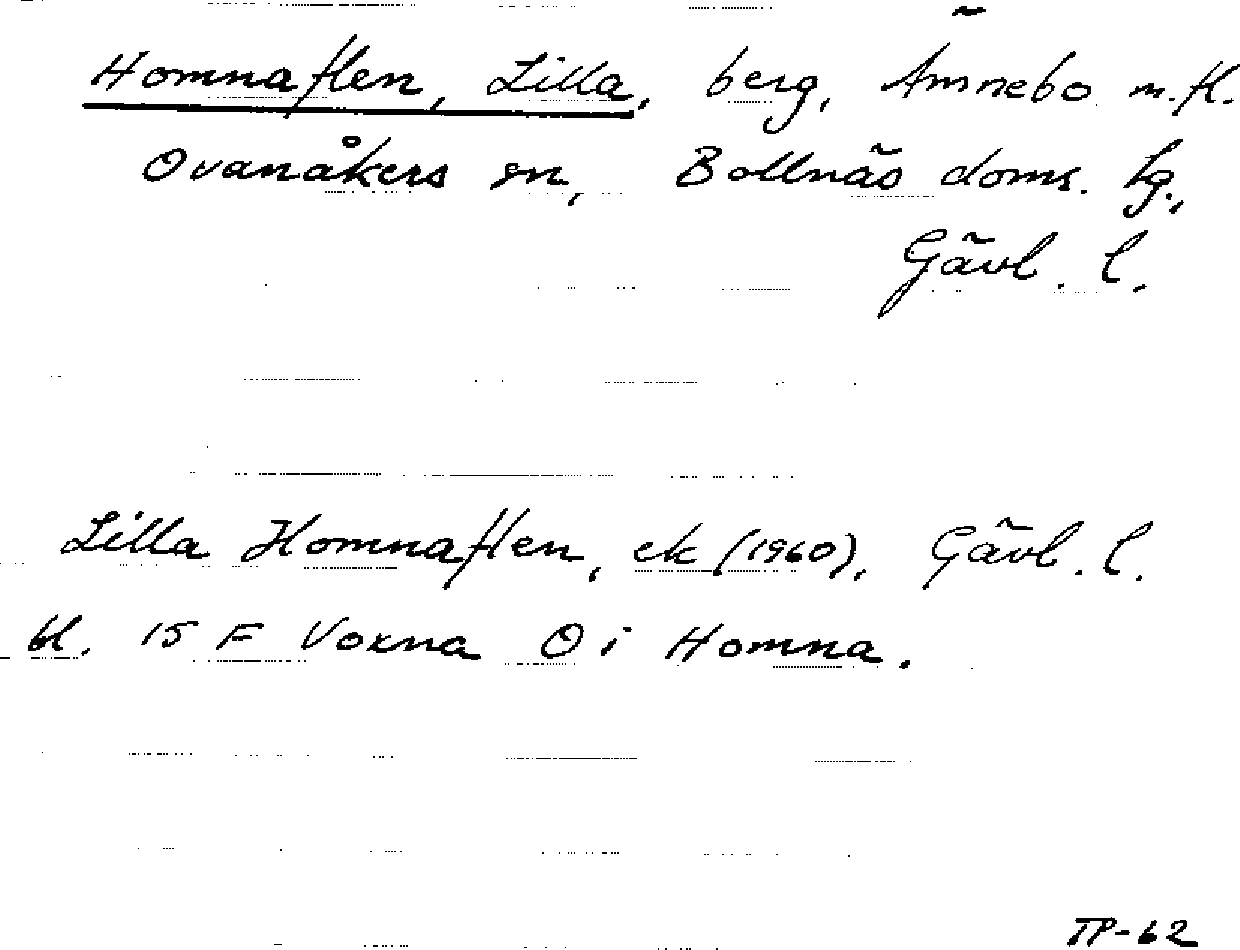 Homnaflen, Lilla, berg, Ämnebo m.fl.
Ovanåkers sn, Bollnäs doms. lg.,
Gävl. l.
Lilla Homnaflen, ek (1960), Gävl. l.
bl. 15 F Voxna Ö i Homna.
TP-62